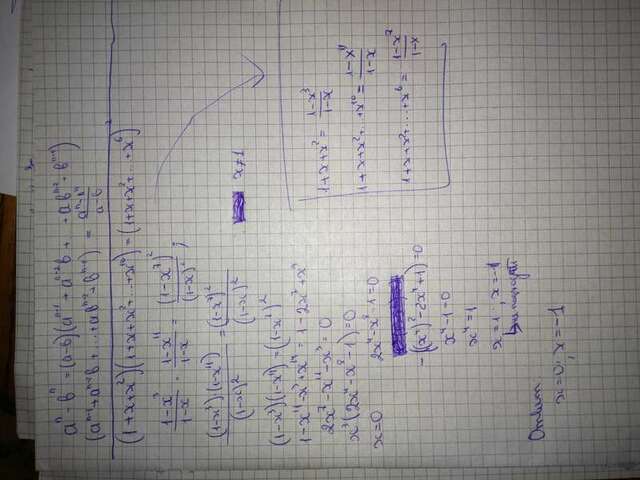 aⁿ-bⁿ=(a-b)(aⁿ⁻¹+aⁿ⁻²b+...+abⁿ⁻²+bⁿ⁻¹)
(aⁿ⁻¹+aⁿ⁻²b+...+abⁿ⁻²+bⁿ⁻¹) = (aⁿ-bⁿ)/(a-b)
(1+x+x²)(1+x+x²+...+x¹⁰)=(1+x+x²+...+x⁶)²
(1-x³)/(1-x) · (1-x¹¹)/(1-x) = (1-x⁷)²/(1-x)² ;
(1-x³)(1-x¹¹)/(1-x)² = (1-x⁷)²/(1-x)² x≠1
(1-x³)(1-x¹¹)=(1-x⁷)²
1-x¹¹-x³+x¹⁴=1-2x⁷+x¹⁴
2x⁷-x¹¹-x³=0
x³(2x⁴-x⁸-1)=0
x=0 2x⁴-x⁸-1=0
-((x⁴)²-2x⁴+1)=0
x⁴-1=0
x⁴=1
x=1, x=-1
Ответ
x=0; x=-1
1+x+x²=(1-x³)/(1-x)
1+x+x²+...+x¹⁰=(1-x¹¹)/(1-x)
1+x+x²+...+x⁶=(1-x⁷)/(1-x)